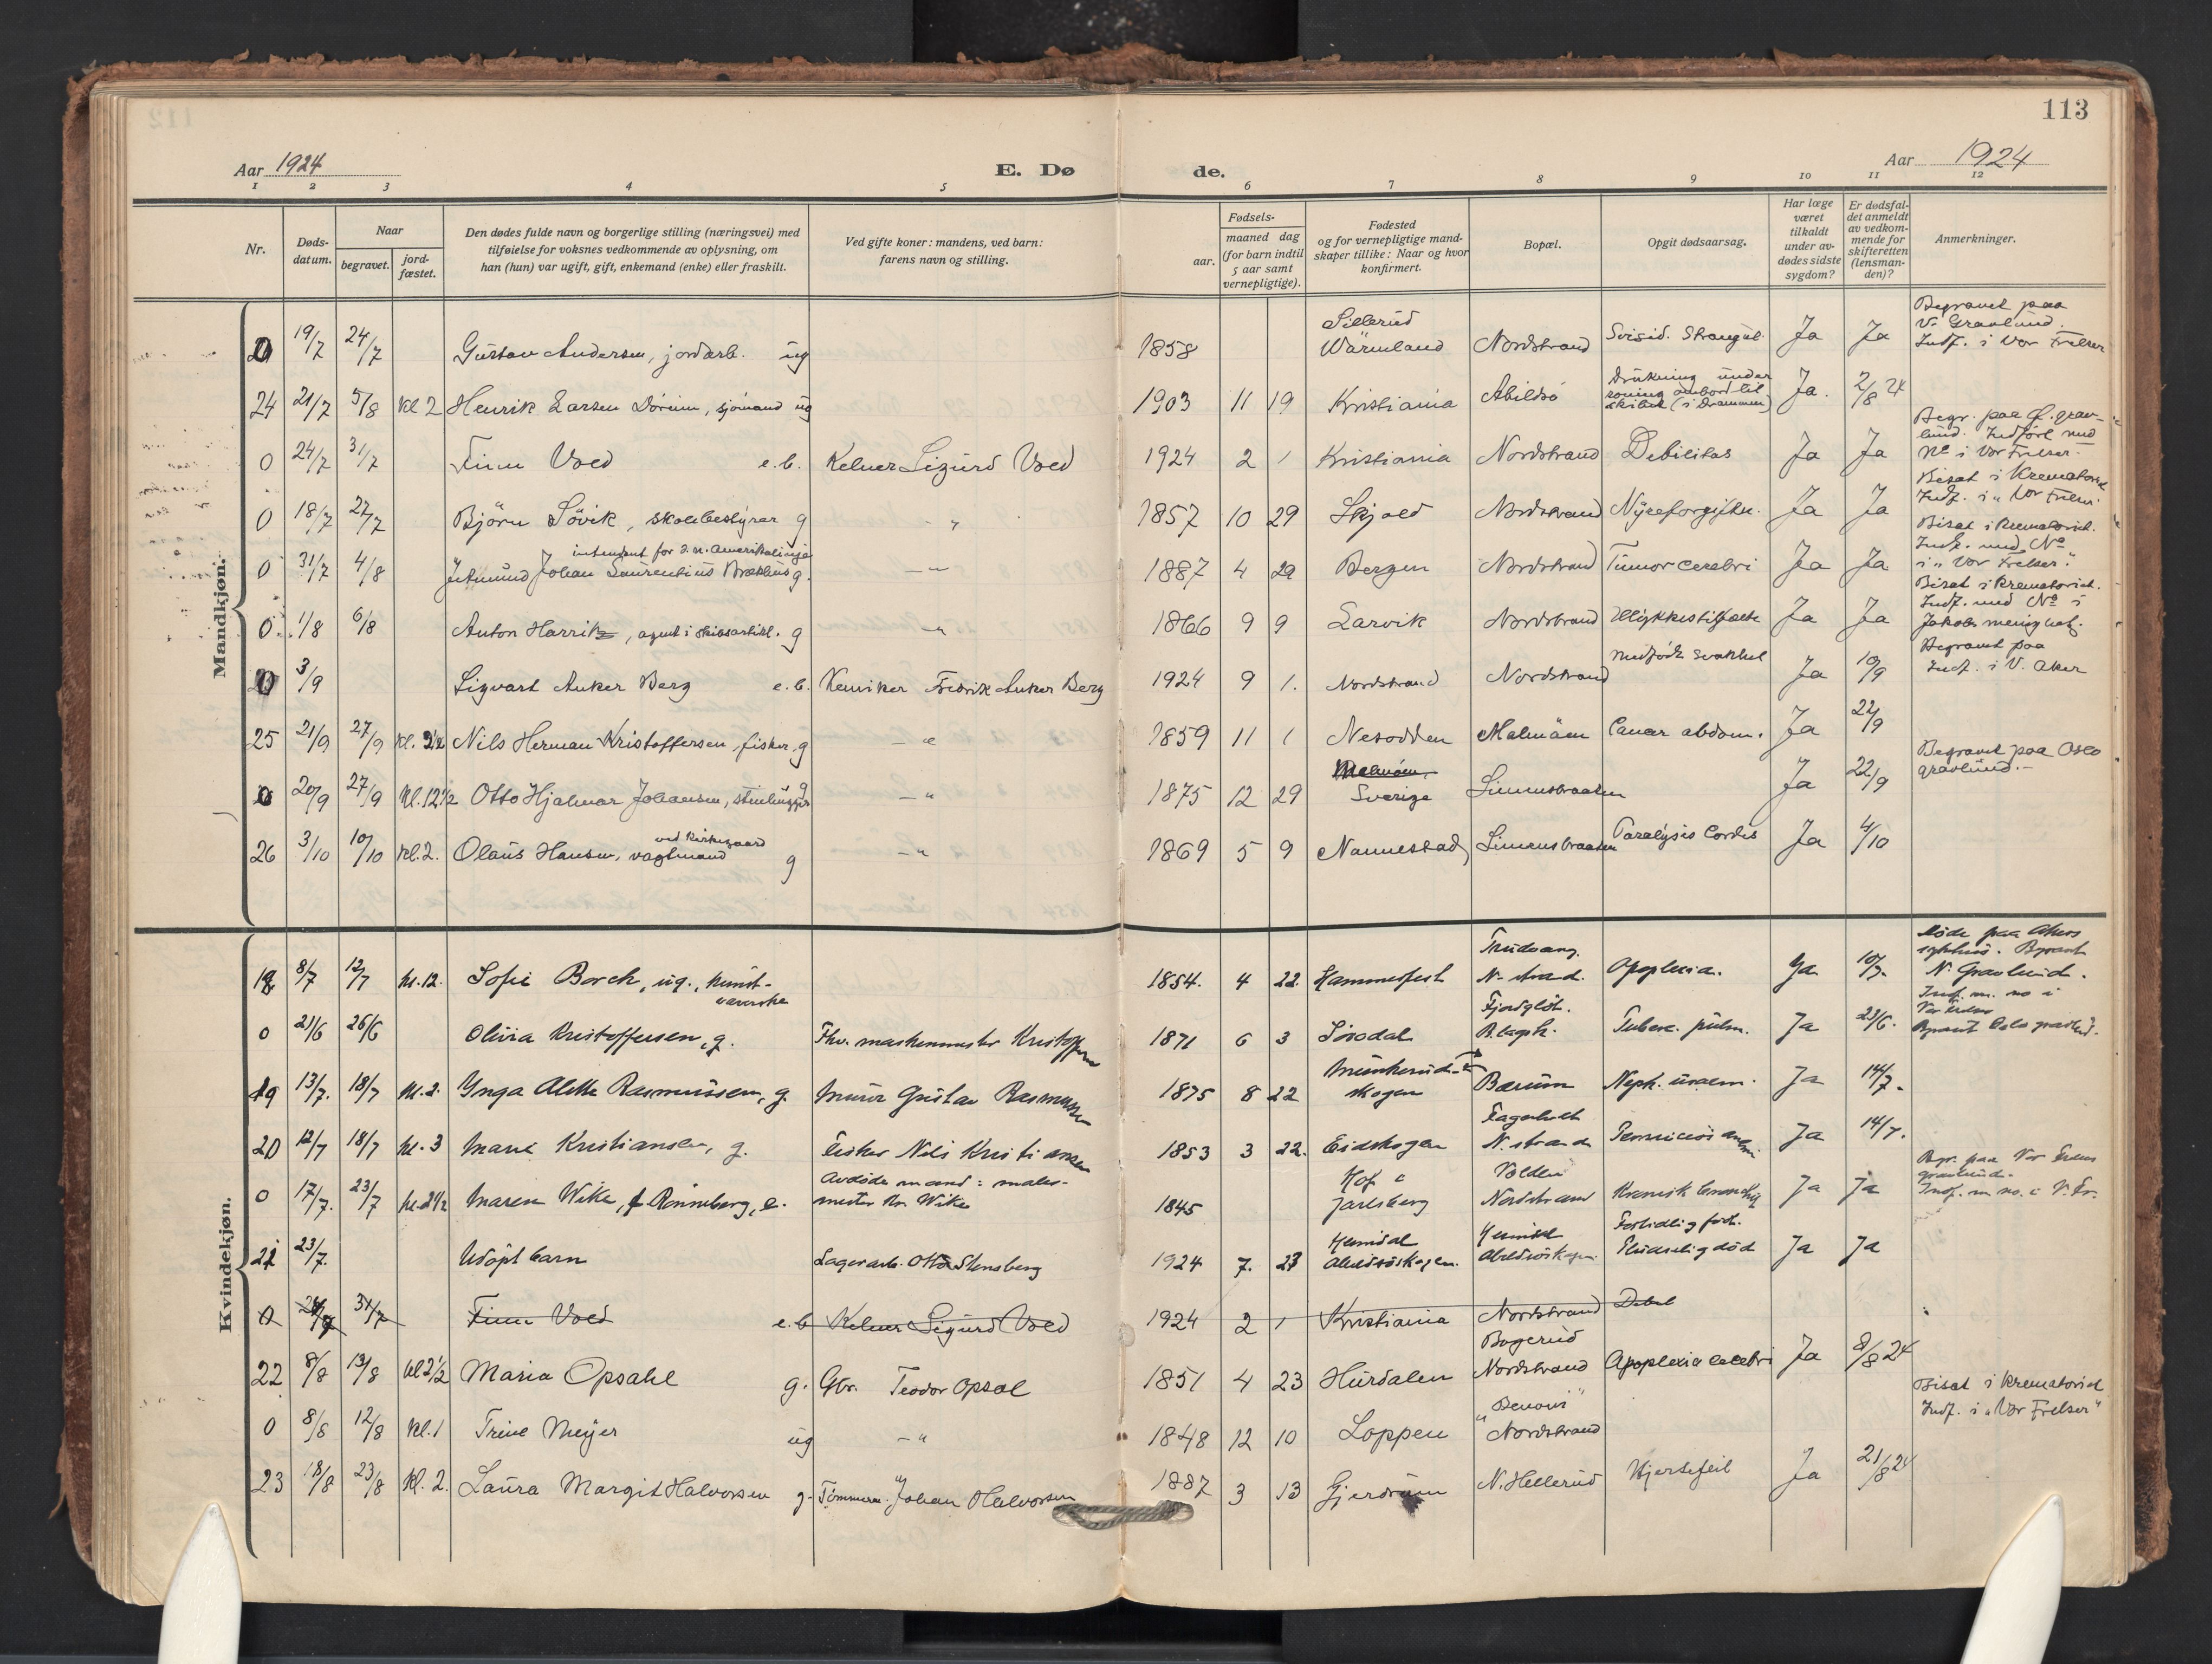 113
Aar 1924 E. Dø de. Aar 1924
1 2 3 4 5 6 7 8 9 10 11 12
Nr.
Døds-
datum.
Naar
begravet.
jord-
fæstet.
Den dødes fulde navn og borgerlige stilling (næringsvei) med
tilføielse for voksnes vedkommende av oplysning, om
han (hun) var ugift, gift, enkemand (enke) eller fraskilt.
Ved gifte koner: mandens, ved barn:
farens navn og stilling.
Fødsels-
aar.
maaned dag
(for barn indtil
5 aar samt
vernepligtige).
Fødested
og for vernepligtige mand-
skaper tillike: Naar og hvor
konfirmert.
Bopæl.
Opgit dødsaarsag.
Har læge
været
tilkaldt
under av-
dødes sidste
sygdom?
Er dødsfal-
det anmeldt
av vedkom-
mende for
skifteretten
(lensman-
den)?
Anmerkninger.
Mandkjøn.
0 19/7 24/7 Gustav Andersen, jordarb. ug 1858 Sillerud Wärmland Nordstrand Svisid. Strangul. Ja Ja Begravet paa V. Gravlund. Indf. i Vor Frelser
24 21/7 5/8 kl 2 Henrik Larsen Dørum, sjømand ug 1903 11 19 Kristiania Abildsø Drukning under roning ombord til skibet (i Drammen) Ja. 2/8 24
0 24/7 31/7 Finn Voed e.b. Kelner Sigurd Voed 1924 2 1 Kristiania Nordstrand Debilitas Ja Ja Begr. paa Ø. grav- lund. Indført med No i Vor Frelser.
0 18/7 22/7 Bjørn Søvik, skolebestyrer g - " 1857 10 29 Skjold Nordstrand Nyreforgiftn. Ja Ja Bisat i Krematoriet Indf. i "Vor Frelser.
0 31/7 4/8 Johan Laurentius Brækhus g. intendent for d. n. Amerikalinje - " 1887 4 29 Bergen Nordstrand Tumor cerebri Ja Ja Bisat i krematoriet. Indf. med No i "Vor Frelser".
0 1/8 6/8 Anton Harritz, agent i skibsartikl. g - " 1866 9 9 Larvik Nordstrand Ulykkestilfælde Ja Ja Bisat i krematoriet. Indf. med No i Jakobs menighet.
0 3/9 Sigvart Anker Berg e.b. Kemiker Fredrik Anker Berg 1924 9 1. Nordstrand Nordstrand Medfødt svakhet Ja 10/9 Begravet paa Indf. i V. Aker
25 21/9 27/9 kl. 2½ Nils Herman Kristoffersen, fisker, g - " 1859 11 1 Nesodden Malmøen Cancer abdom. Ja 22/9
0 20/9 27/9 kl. 12½ Otto Hjalmar Johansen, stenhugger g - " 1875 12 29 Malmøen, Sverige Simensbraaten Ja 22/9 Begravet paa Oslo gravlund.-
26 3/10 10/10 kl. 2. Olaus Hansen, vagtmand ved kirkegaard g - " 1869 5 9 Nannestad Simensbraaten Paralysis Cordis Ja 4/10
Kvindekjøn.
18 8/7 12/7 kl. 12. Sofie Borch, ug., kunst- væverske 1854. 4 22. Hammerfest Trudvang. N-strand. Apoplexia. Ja 10/7. Døde paa Akers sykehus. Begravet N. Gravlund. Indf. m. no i Vor Frelser
0 21/6 26/6 Olivia Kristoffersen, g. Fhv. maskinmester Kristoffersen 1871 6 3 Sørodal Fjordgløt. B.lagsh. Tuberc. pulm. Ja 23/6. Begravet Oslo gravlund.
19 13/7. 18/7 kl. 2. Ynga Alette Rasmussen, g. Murer Gustav Rasmussen 1875 8 22 Munkerud- skogen Bærum Neph. uræm. Ja 14/7.
20 12/7 18/7 kl. 3 Marie Kristiansen, g. Fisker Nils Kristiansen 1853 3 22. Eidskogen Fagerholt N.strand Perniciøs anemi Ja 14/7.
0 17/7. 23/7 kl. 2½ Maren Wike, f. Rønneberg, e. Avdøde mand: maler- mester Kr. Wike 1845 Hof i Jarlsberg Volden Nordstrand Kronisk bronchit Ja Ja Begr. paa Vor Frelsers gravlund. Indf. m. no. i V. Fr.
21 23/7. Udøpt barn Lagerarb. Otto Stensberg 1924 7. 23 Heimdal Abildsøskogen. Heimdal Abildsøskogen. Fortidlig født. Pludselig død Ja Ja
0 24/7 31/7 Finn Voed e.b Kelner Sigurd Voed 1924 2 1 Kristiania Nordstrand Debil
22 8/8 13/8 kl 2½ Maria Opsahl g. Gbr. Teodor Opsal 1851 4 23 Hurdalen Bogerud Nordstrand Apoplexia cerebri Ja 8/8 24
0 8/8 12/8 kl. 1 Trine Meyer ug - " 1848 12 10 Loppen "Benoni" Nordstrand Bisat i krematoriet Indf. i "Vor Frelser"
23 18/8 23/8 kl. 2. Laura Margit Halvorsen g. Tømmerm. Johan Halvorsen 1887 3 13 Gjerdrum N. Hellerud Hjertefeil Ja 21/8 24